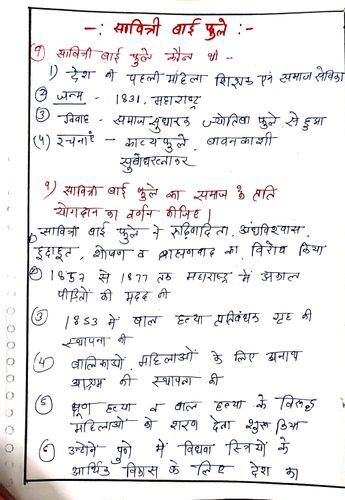 -: सावित्री बाई फुले :-
१) सावित्री बाई फुले कौन थी -
1) देश की पहली महिला शिक्षक एवं समाज सेविका
② जन्म - 1831, महाराष्ट्र
③ विवाह - समाज सुधारक ज्योतिबा फुले से हुआ
(५) रचनाएं - काव्य फुले, बावनकाशी
सुबोधरत्नाकर
१) सावित्री बाई फुले का समाज के प्रति
योगदान का वर्णन कीजिए।
1) सावित्री बाई फुले ने रूढ़िवादिता, अंधविश्वास,
छुआछूत, शोषण व ब्राह्मणवाद का विरोध किया
② 1857 से 1877 तक महाराष्ट्र में अकाल
पीड़ितों की मदद की
③ 1853 में बाल हत्या प्रतिबंधक गृह की
स्थापना की
④ बालिकाओं, महिलाओं के लिए अनाथ
आश्रम की स्थापना की
⑤ भ्रूण हत्या व बाल हत्या के विरुद्ध
महिलाओं को शरण देना शुरू किया
⑥ उन्होंने पुणे में विधवा स्त्रियों के
आर्थिक विकास के लिए देश का